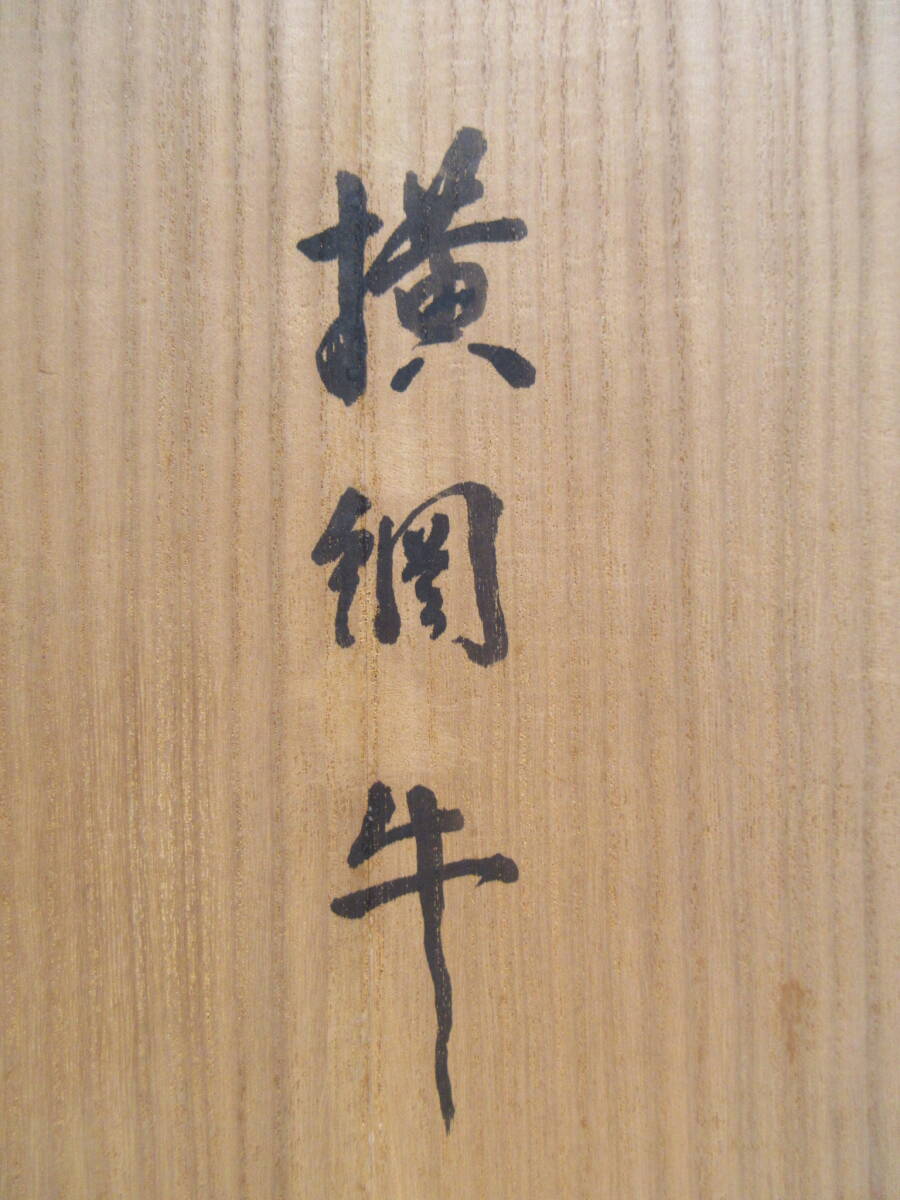 横綱牛